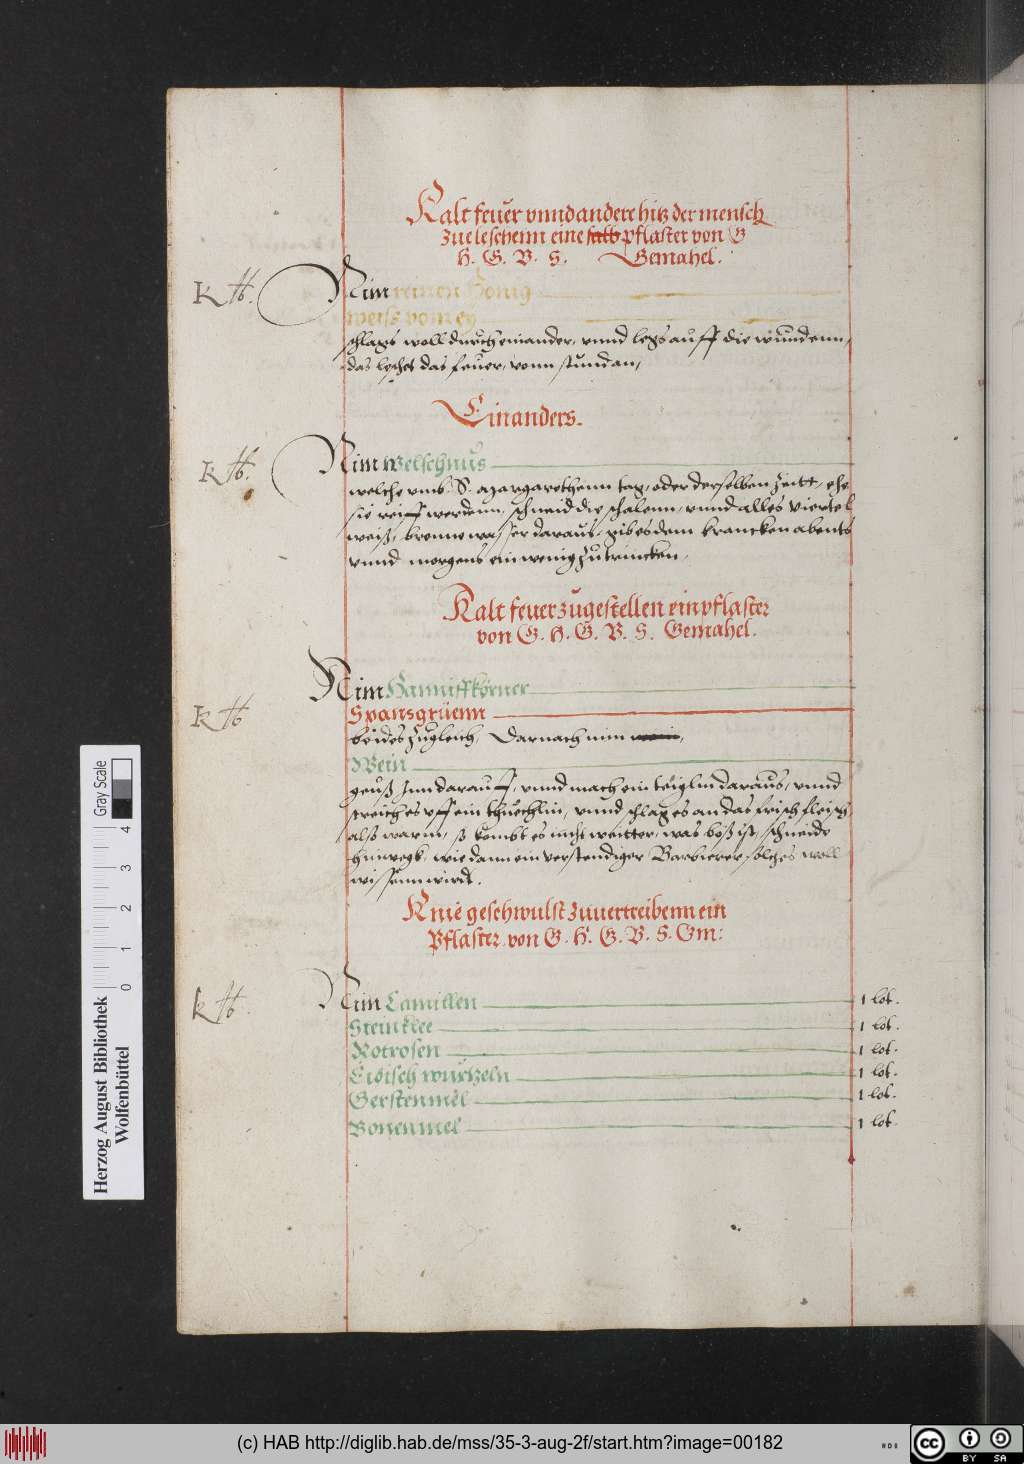 Kalt feuer vnnd andere hitz der mensch
zue leschenn eine salb pflaster von G
H. G. V. S. Gemahel.
K H.
Nim reinen Honig
weiß vom ey
schlags woll durch einander, vnnd legs auff die wundenn,
das leschet das feuer, vonn stund an,
Ein anders.
K H.
Nim welschnus
welche vmb S. Margarethenn tag, oder derselben Zeitt, ehe
sie reiff werdenn, schneid die schalenn, vnnd alles viertel
weiß, brenne wasser daraus, gib es dem krancken abents
vnnd morgens ein wenig zu trincken,
Kalt feuer zugestellen ein pflaster
von G. H. G. V. S. Gemahel.
K H
Nim Hanniffkörner
Spansgrüenn
beides zugleich, Darnach nim wein,
Wein
geuß Inn darauff, vnnd mach ein teiglin daraus, vnnd
streich es vff ein thuechlin, vnnd schlag es an das frisch fleisch
alß warm, ß kombt es nicht weitter, was böß ist, schneide
hinwegk, wie dann ein verstendiger Barbierer solches woll
wissenn wirdt.
Knie geschwulst zuuertreibenn ein
Pflaster von G. H. G. V. S. Gm:
k H.
Nim Camillen 1 lot.
Steinklee 1 lot.
Rotrosen 1 lot.
Eibisch wurtzeln 1 lot.
Gerstenmel 1 lot.
Bonenmel 1 lot.
Herzog August Bibliothek
Wolfenbüttel
Gray Scale
0 1 2 3 4
(c) HAB http://diglib.hab.de/mss/35-3-aug-2f/start.htm?image=00182
cc BY SA